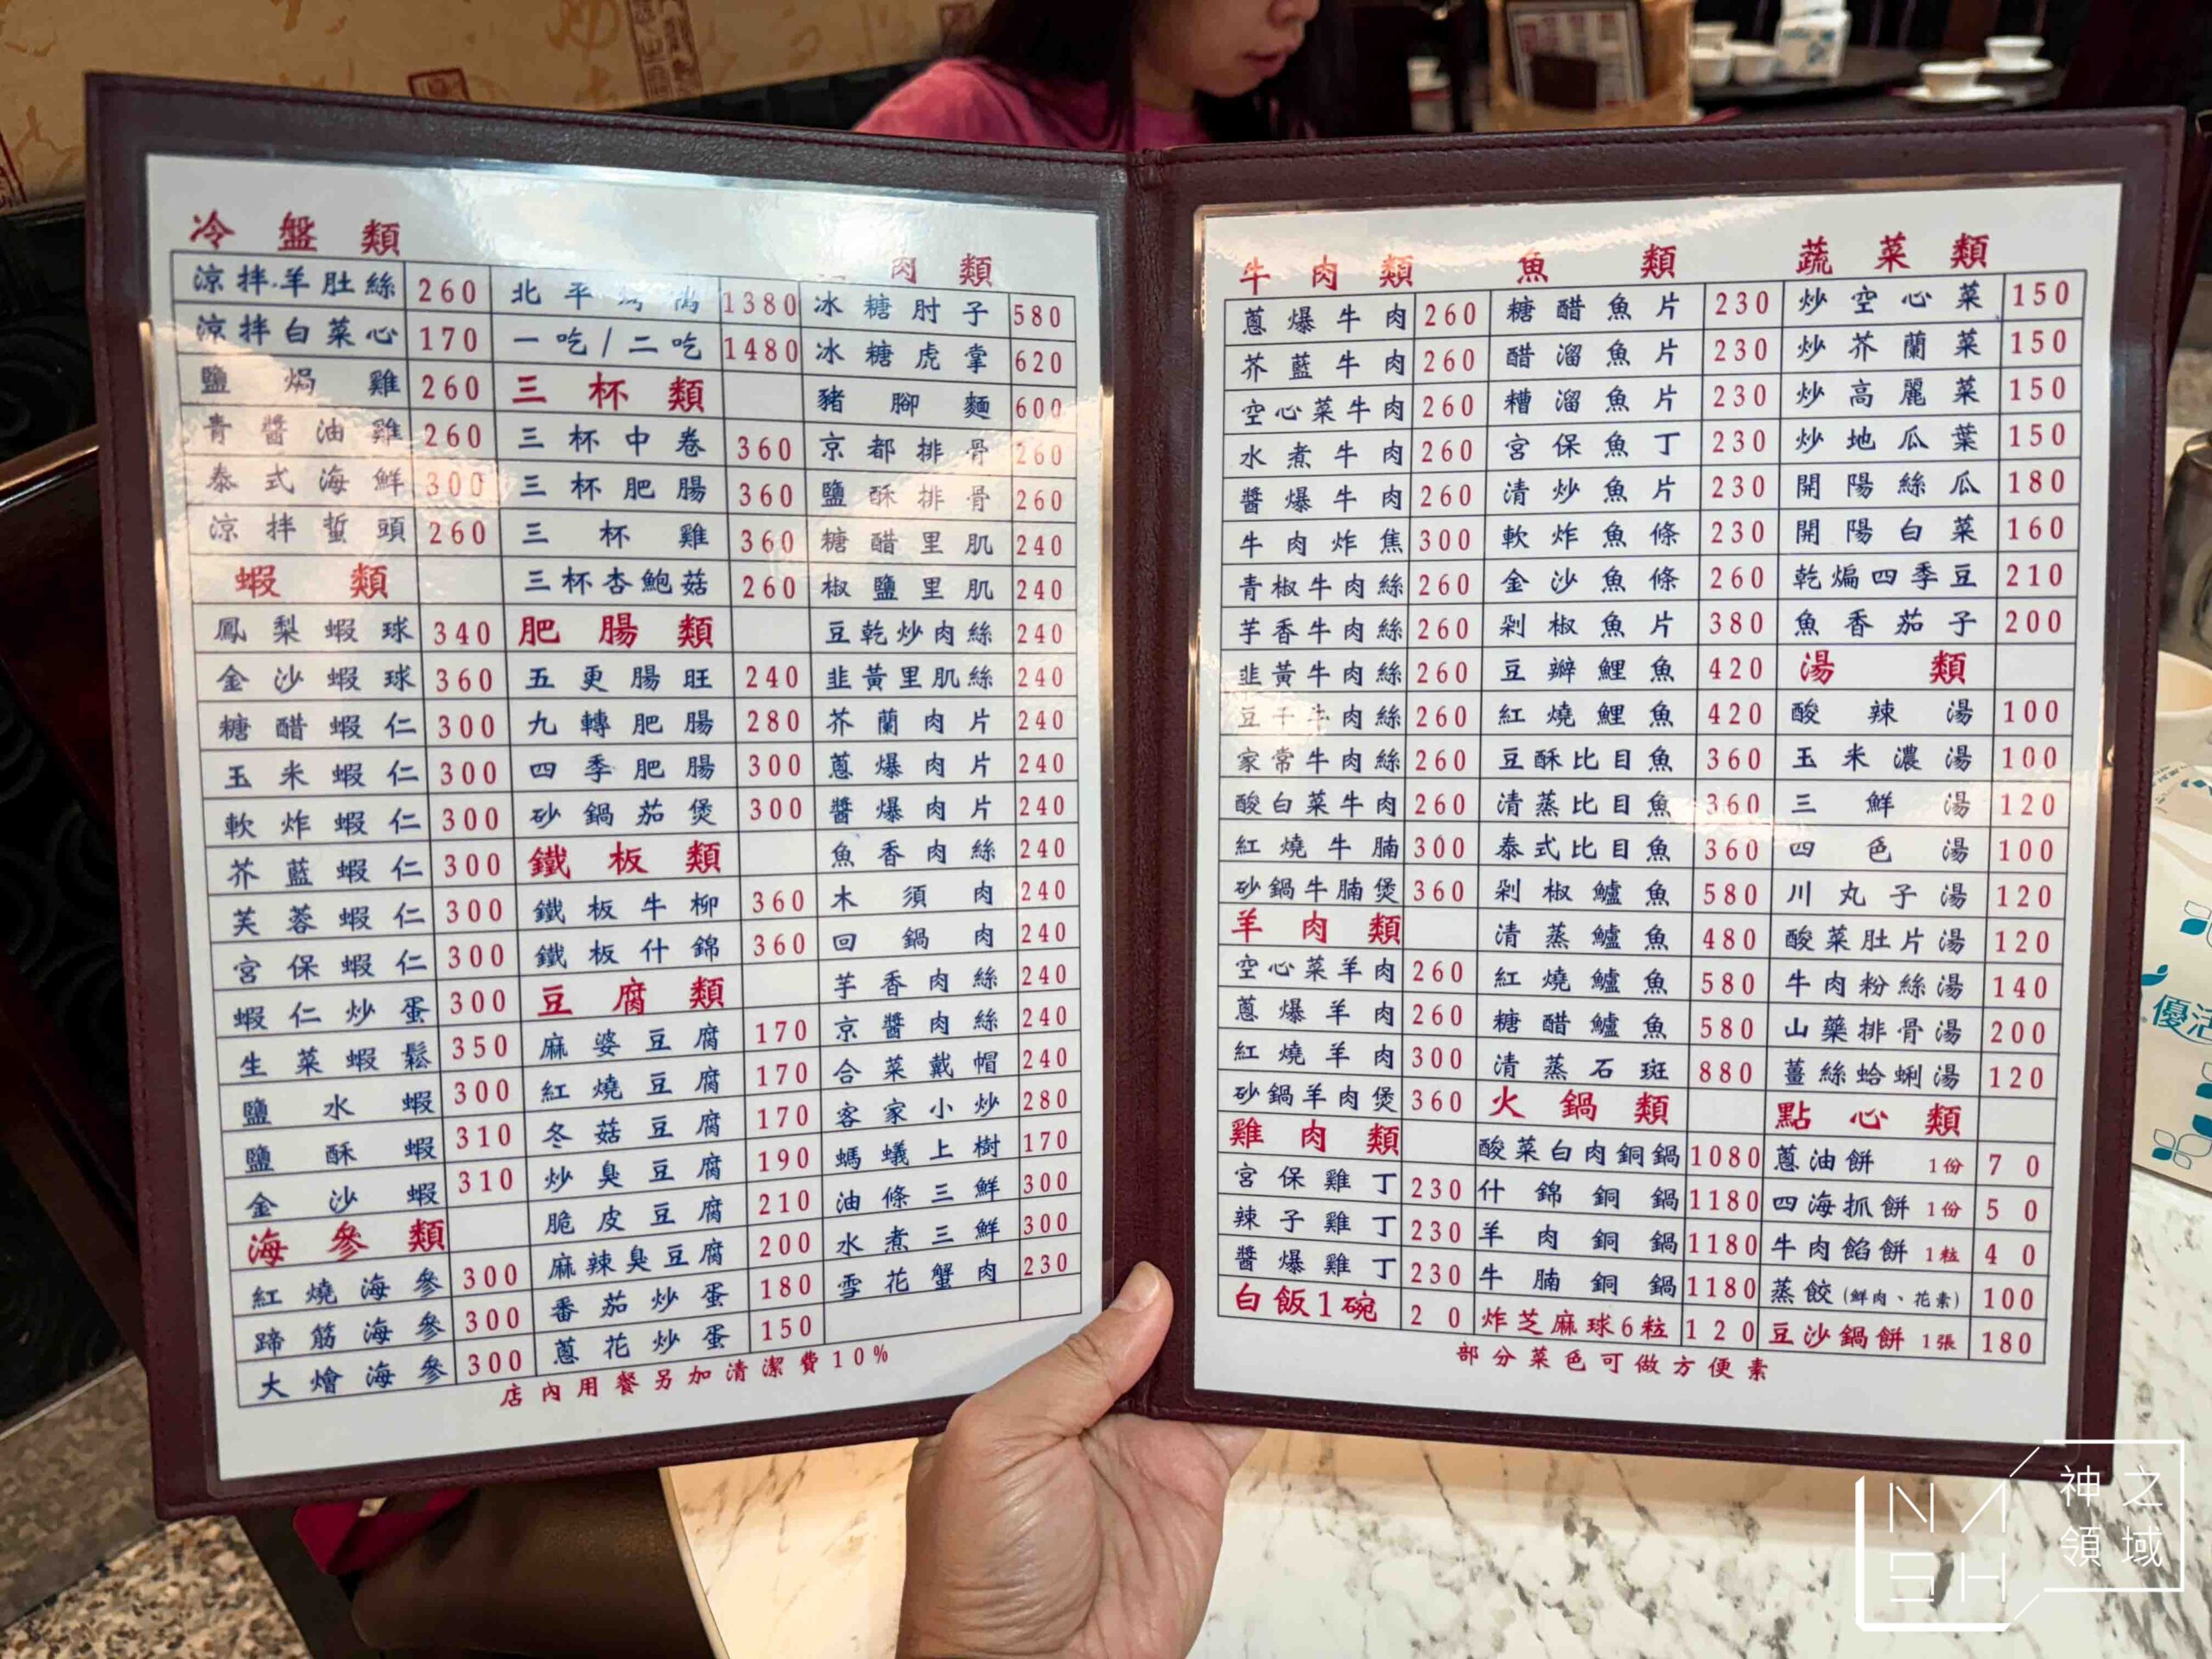 冷盤類
涼拌羊肚絲 260
涼拌白菜心 170
鹽焗雞 260
青醬油雞 260
泰式海鮮 300
涼拌蜇頭 260
蝦類
鳳梨蝦球 340
金沙蝦球 360
糖醋蝦仁 300
玉米蝦仁 300
軟炸蝦仁 300
芥藍蝦仁 300
芙蓉蝦仁 300
宮保蝦仁 300
蝦仁炒蛋 300
生菜蝦鬆 350
鹽水蝦 300
鹽酥蝦 310
金沙蝦 310
海參類
紅燒海參 300
蹄筋海參 300
大燴海參 300
北平 1380
一吃/二吃 1480
三杯類
三杯中卷 360
三杯肥腸 360
三杯雞 360
三杯杏鮑菇 260
肥腸類
五更腸旺 240
九轉肥腸 280
四季肥腸 300
砂鍋茄煲 300
鐵板類
鐵板牛柳 360
鐵板什錦 360
豆腐類
麻婆豆腐 170
紅燒豆腐 170
冬菇豆腐 170
炒臭豆腐 190
脆皮豆腐 210
麻辣臭豆腐 200
番茄炒蛋 180
蔥花炒蛋 150
肉類
冰糖肘子 580
冰糖虎掌 620
豬腳麵 600
京都排骨 260
鹽酥排骨 260
糖醋里肌 240
椒鹽里肌 240
豆乾炒肉絲 240
韭黃里肌絲 240
芥蘭肉片 240
蔥爆肉片 240
醬爆肉片 240
魚香肉絲 240
木須肉 240
回鍋肉 240
芋香肉絲 240
京醬肉絲 240
合菜戴帽 240
客家小炒 280
螞蟻上樹 170
油條三鮮 300
水煮三鮮 300
雪花蟹肉 230
店內用餐另加清潔費10%
牛肉類
蔥爆牛肉 260
芥藍牛肉 260
空心菜牛肉 260
水煮牛肉 260
醬爆牛肉 260
牛肉炸焦 300
青椒牛肉絲 260
芋香牛肉絲 260
韭黃牛肉絲 260
豆干牛肉絲 260
家常牛肉絲 260
酸白菜牛肉 260
紅燒牛腩 300
砂鍋牛腩煲 360
羊肉類
空心菜羊肉 260
蔥爆羊肉 260
紅燒羊肉 300
砂鍋羊肉煲 360
雞肉類
宮保雞丁 230
辣子雞丁 230
醬爆雞丁 230
白飯1碗 20
魚類
糖醋魚片 230
醋溜魚片 230
糟溜魚片 230
宮保魚丁 230
清炒魚片 230
軟炸魚條 230
金沙魚條 260
剁椒魚片 380
豆瓣鯉魚 420
紅燒鯉魚 420
豆酥比目魚 360
清蒸比目魚 360
泰式比目魚 360
剁椒鱸魚 580
清蒸鱸魚 480
紅燒鱸魚 580
糖醋鱸魚 580
清蒸石斑 880
火鍋類
酸菜白肉銅鍋 1080
什錦銅鍋 1180
羊肉銅鍋 1180
牛腩銅鍋 1180
炸芝麻球6粒 120
蔬菜類
炒空心菜 150
炒芥蘭菜 150
炒高麗菜 150
炒地瓜葉 150
開陽絲瓜 180
開陽白菜 160
乾煸四季豆 210
魚香茄子 200
湯類
酸辣湯 100
玉米濃湯 100
三鮮湯 120
四色湯 100
川丸子湯 120
酸菜肚片湯 120
牛肉粉絲湯 140
山藥排骨湯 200
薑絲蛤蜊湯 120
點心類
蔥油餅 1份 70
四海抓餅 1份 50
牛肉餡餅 1粒 40
蒸餃(鮮肉、花素) 100
豆沙鍋餅 1張 180
部分菜色可做方便素
優活
NASH
神之領域